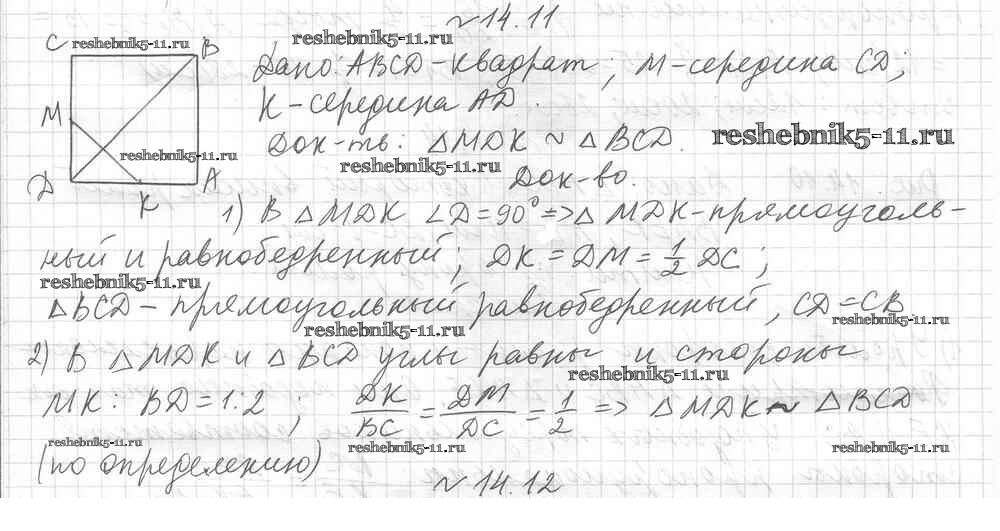 № 14.11
C reshebnik5-11.ru B reshebnik5-11.ru
Дано: ABCD – квадрат; M – середина CD;
M K – середина AD.
reshebnik5-11.ru Док-ть: △MDK ~ △BCD. reshebnik5-11.ru
D K A reshebnik5-11.ru Док-во.
1) В △MDK ∠D = 90° => △ MDK – прямоуголь-
ный и равнобедренный; DK = DM = 1/2 DC;
reshebnik5-11.ru
△BCD – прямоугольный равнобедренный, CD = CB.
reshebnik5-11.ru reshebnik5-11.ru
2) В △MDK и △BCD углы равны и стороны
reshebnik5-11.ru
MK : BD = 1:2 ; DK/BC = DM/DC = 1/2 => △MDK ~ △BCD
reshebnik5-11.ru reshebnik5-11.ru reshebnik5-11.ru
(по определению)
№ 14.12